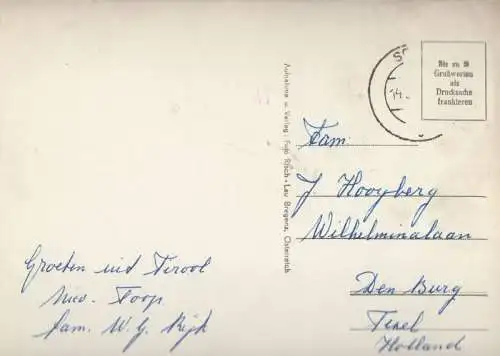 Groeten uit Tirool
Nico - Joop
fam. W. G. Rijk
Aufnahme u. Verlag: Foto Risch-Lau Bregenz, Österreich
14.
Bis zu 5
Grußworten
als
Drucksache
frankieren
Fam.
J. Hooyberg
Wilhelminalaan
Den Burg
Texel
Holland